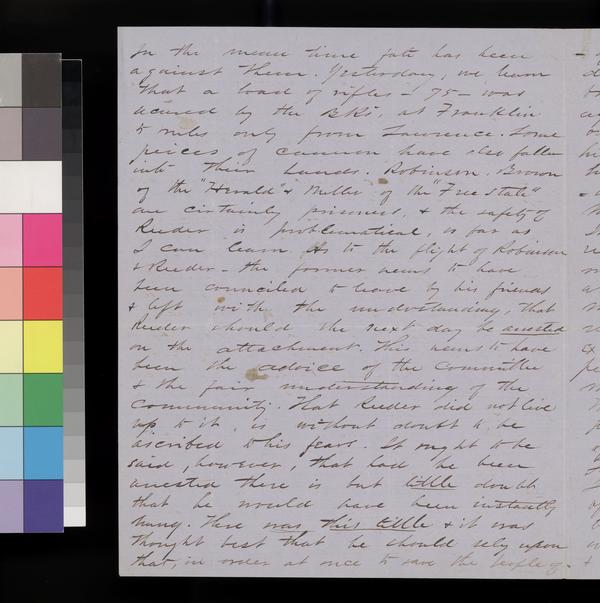 In the mean time fate has been
against them. Yesterday, we learn
that a load of rifles - 75 - was
secured by the B.R's, at Franklin
5 miles only from Lawrence. Some
peices of cannon have also fallen
into their hands. Robinson. Brown
of the "Herald" & Miller of the "Free State"
are certainly prisoners. & the safety of
Reeder is problematical, so far as
I can learn As to the flight of Robinson
& Reeder - the former seems to have
been counciled to leave by his friends
& left with the understanding, that
Reeder should the next day be arrested
on the attachment. This seems to have
been the advice of the Committee
& the fair understanding of the
community. That Reeder did not live
up to it, is without doubt to be
ascribed to his fears. It ought to be
said, however, that had he been
arrested there is but little doubt
that he would have been instantly
hung. There was this little & it was
thought best that he should rely upon
that, in order at once to save the people of